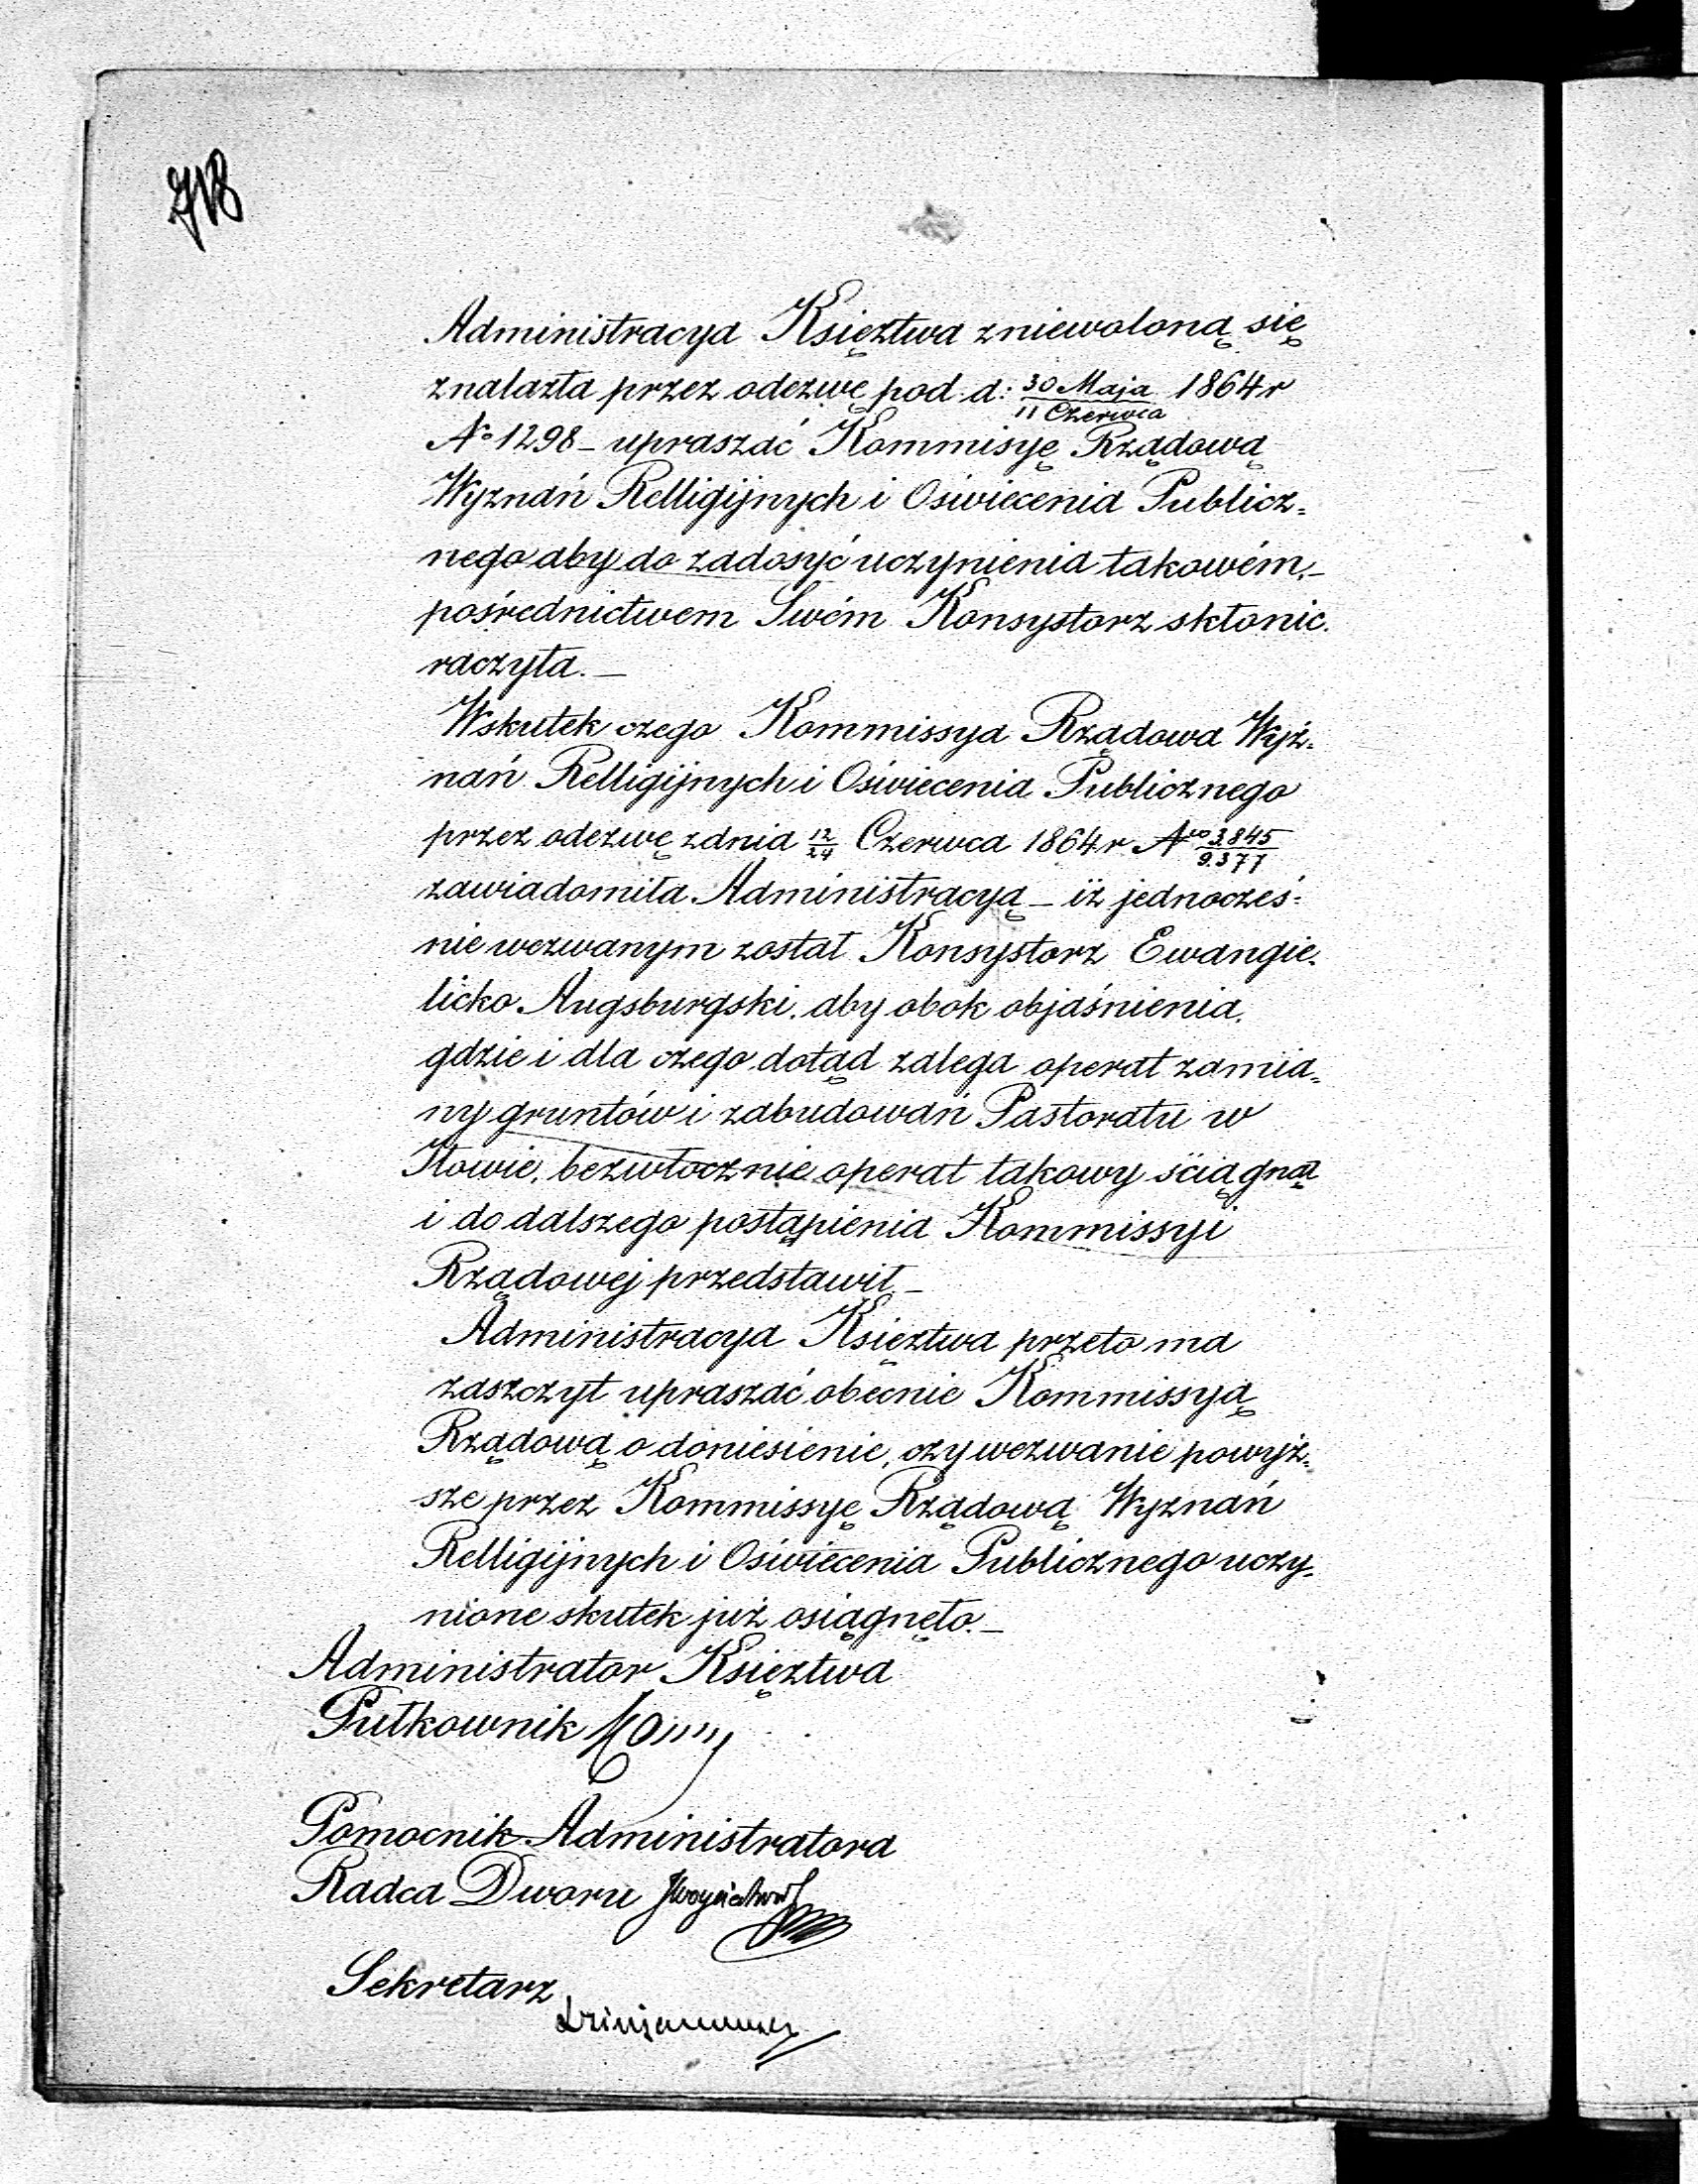 718
Administracya Księztwa zniewoloną się
znalazła przez odezwę pod d: 30 Maja/11 Czerwca 1864 r
No 1298 – upraszać Kommisyę Rządową
Wyznań Relligijnych i Oświecenia Publicz=
nego aby do zadosyć uczynienia takowém, –
pośrednictwem Swém Konsystorz skłonic.
raczyła. –
Wskutek czego Kommissya Rządowa Wyz=
nań Relligijnych i Oświecenia Publicznego
przez odezwę z dnia 12/24 Czerwca 1864 r No 3.845/9.377
zawiadomiła Administracyą – iż jednocześ=
nie wezwanym został Konsystorz Ewangie=
licko Augsburgski, aby obok objaśnienia,
gdzie i dla czego dotąd zalega operat zamia=
ny gruntów i zabudowań Pastoratu w
Iłowie, bezwłocznie operat takowy ściągnął
i do dalszego postąpienia Kommissyi
Rządowej przedstawił. –
Administracya Księztwa przeto ma
zaszczyt upraszać obecnie Kommissyą
Rządową o doniesienie, czy wezwanie powyż=
sze przez Kommissyę Rządową Wyznań
Relligijnych i Oświecenia Publicznego uczy=
nione skutek już osiągnęło. –
Administrator Księztwa
Pułkownik
Pomocnik Administratora
Radca Dworu
Sekretarz